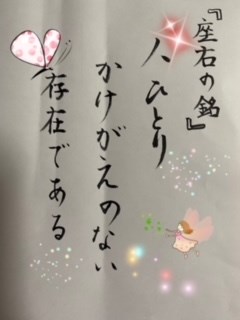 『座右の銘』
人ひとり
かけがえのない
存在である